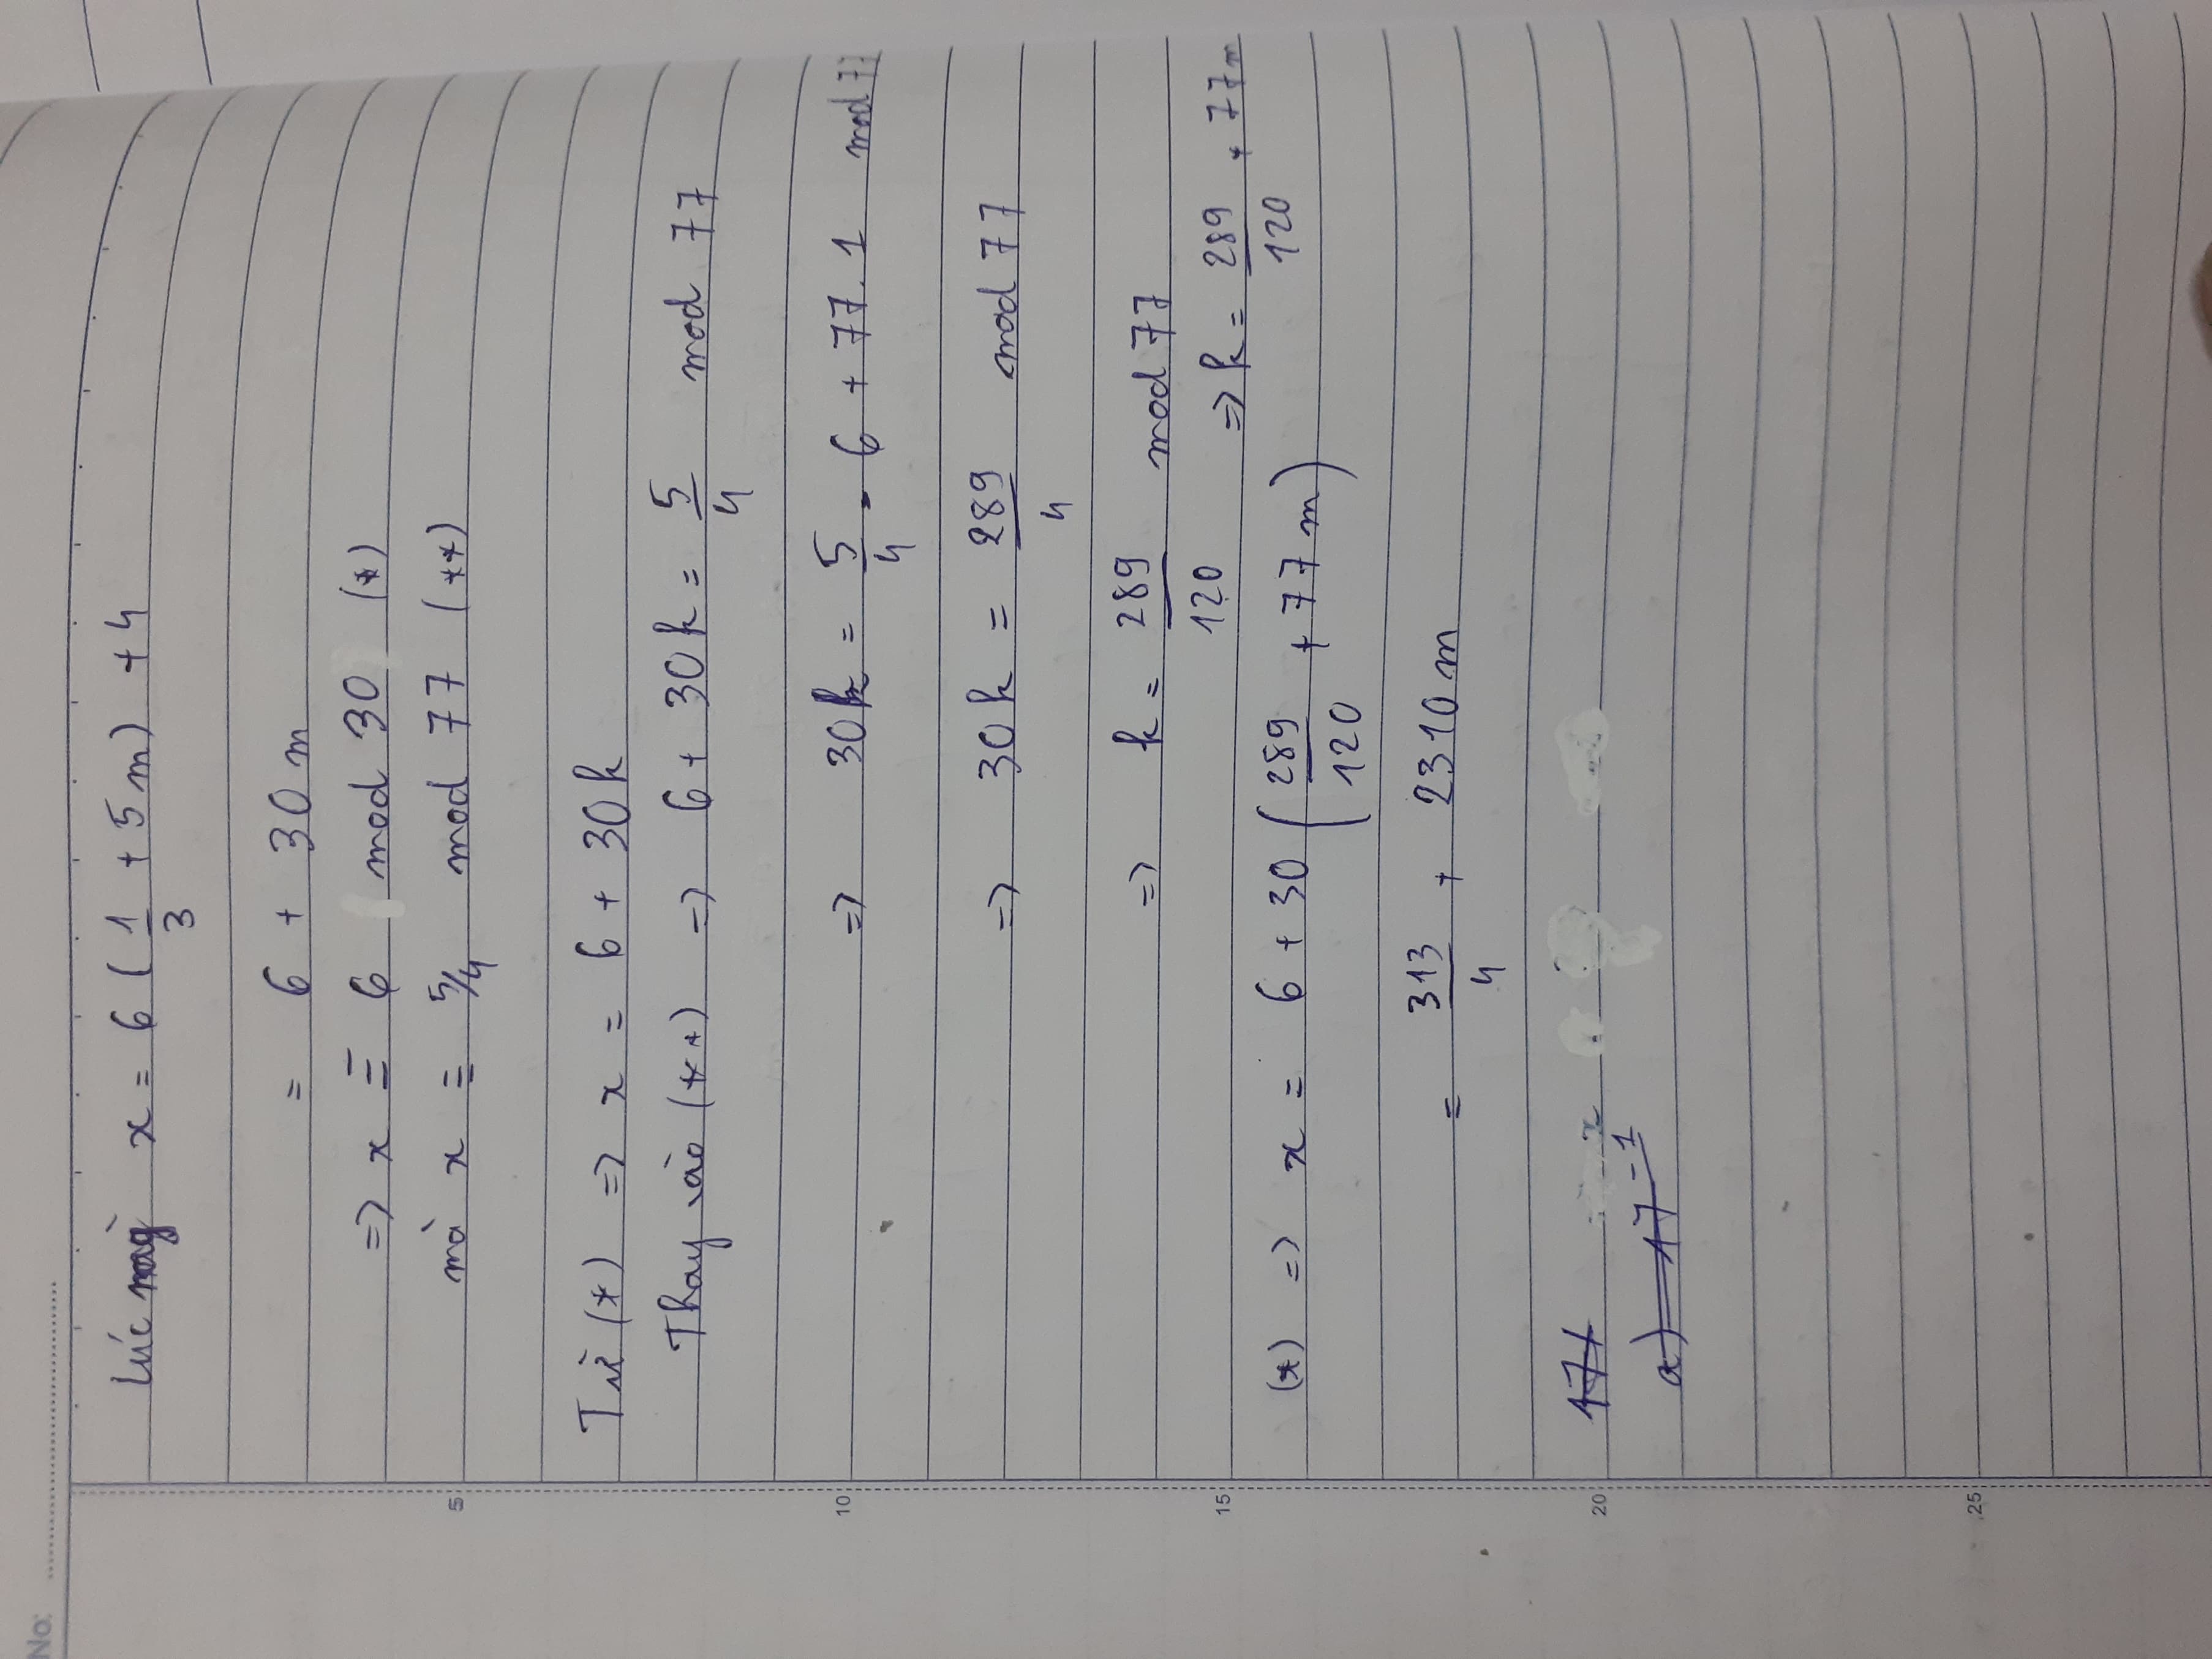 No:
Lúc này x = 6 ( 1/3 + 5m ) + 4
= 6 + 30m
=> x ≡ 6 mod 30 (*)
mà x ≡ 5/4 mod 77 (**)
5
Từ (*) => x = 6 + 30k
Thay vào (**) => 6 + 30k = 5/4 mod 77
10
=> 30k = 5/4 - 6 + 77.1 mod 77
=> 30k = 289/4 mod 77
=> k = 289/120 mod 77
15
=> k = 289/120 + 77m
(*) => x = 6 + 30 ( 289/120 + 77m )
= 313/4 + 2310m
17/
20
a) 17^-1
25